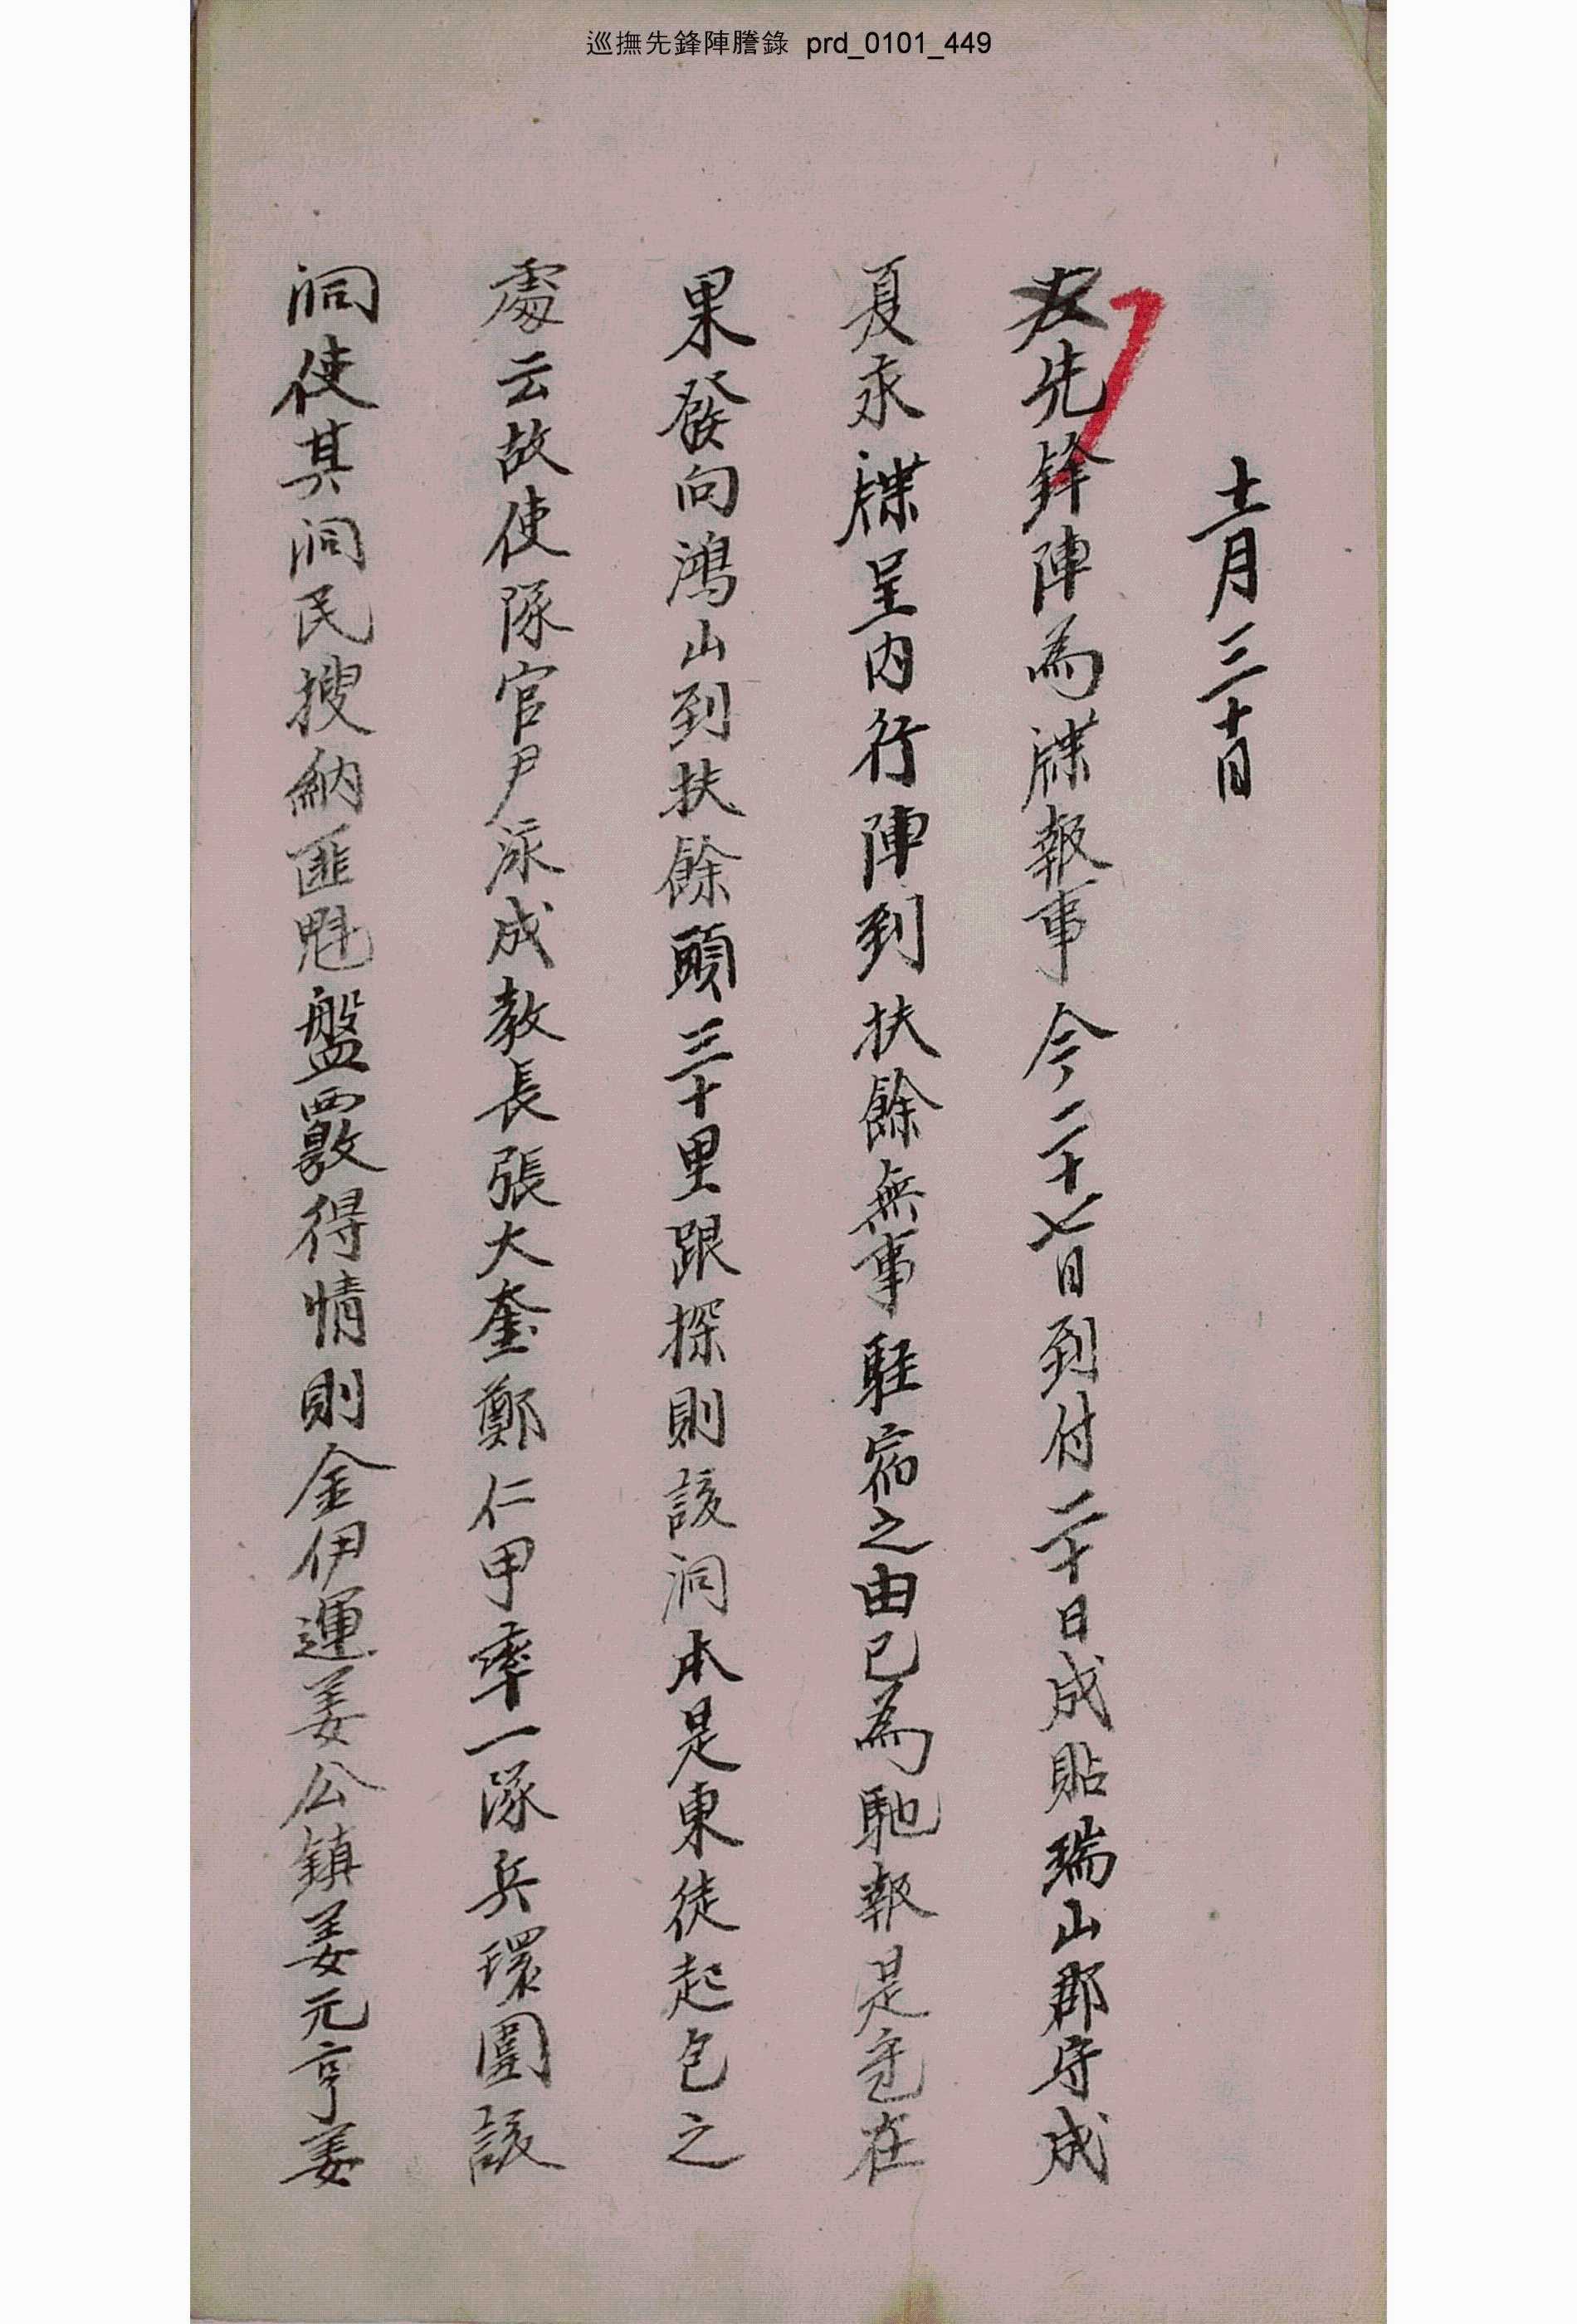 巡撫先鋒陣謄錄 prd_0101_449
十一月三十日
先鋒陣為牒報事今二十七日到付二十日成貼瑞山郡守成
夏永牒呈內行陣到扶餘無事駐宿之由已為馳報是在
果發向鴻山到扶餘頭三十里跟探則該洞本是東徒起包之
處云故使隊官尹泳成教長張大奎鄭仁甲率一隊兵環圍該
洞使其洞民搜納匪魁盤覈得情則金伊運姜公鎮姜元亨姜